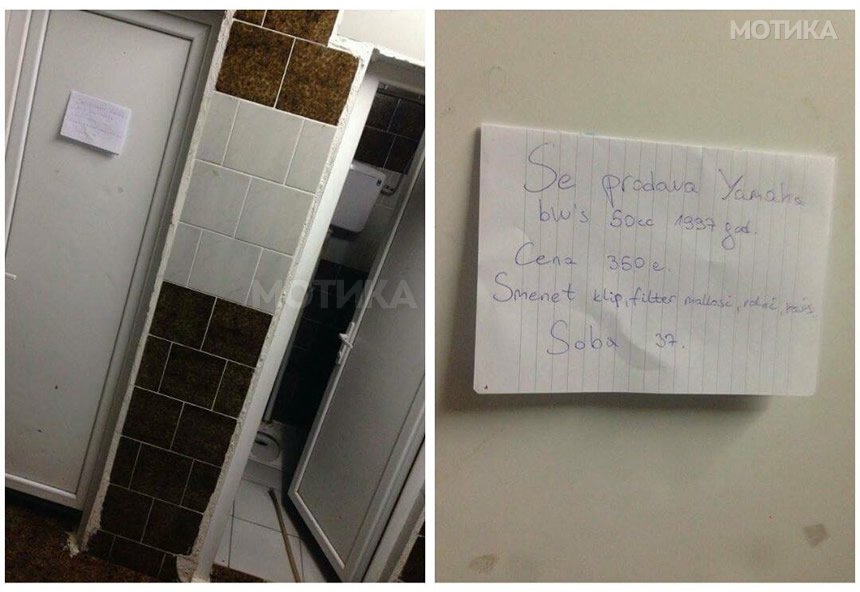 МОТИКА
МОТИКА
Se prodava Yamaha
bw's 50cc 1997 god.
Cena 350 e.
Smenet klip, filter
Soba 37.